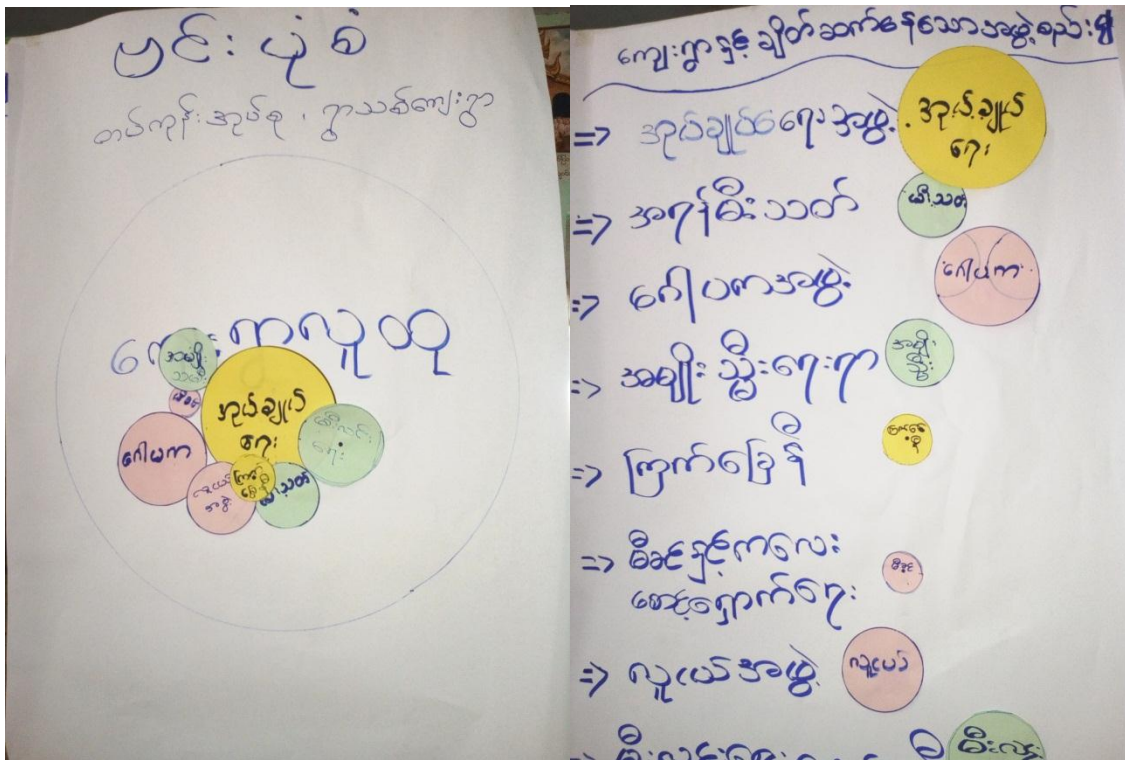 ဗင်းပုံစံ
တပ်ကုန်းအုပ်စု ၊ ရွာသစ်ကျေးရွာ
ကျေးရွာလူထု
အမျိုး
သမီး
မိခင်
အုပ်ချုပ်
ရေး
ဂေါပက
မီးလင်း
ရေး
လူငယ်
အဖွဲ့
ကြက်
ခြေနီ
မီးသတ်
ကျေးရွာနှင့် ချိတ်ဆက်နေသောအဖွဲ့စည်း
=> အုပ်ချုပ်ရေးအဖွဲ့
အုပ်ချုပ်
ရေး
=> အရန်မီးသတ်
မီးသတ်
=> ဂေါပကအဖွဲ့
ဂေါပက
=> အမျိုးသ္မီးရေးရာ
အမျိုး
သ္မီး
=> ကြက်ခြေနီ
=> မိခင်နှင့်ကလေး
စောင့်ရှောက်ရေး
မိခင်
=> လူငယ်အဖွဲ့
လူငယ်
မီးလင်းရေး
မီးလင်း